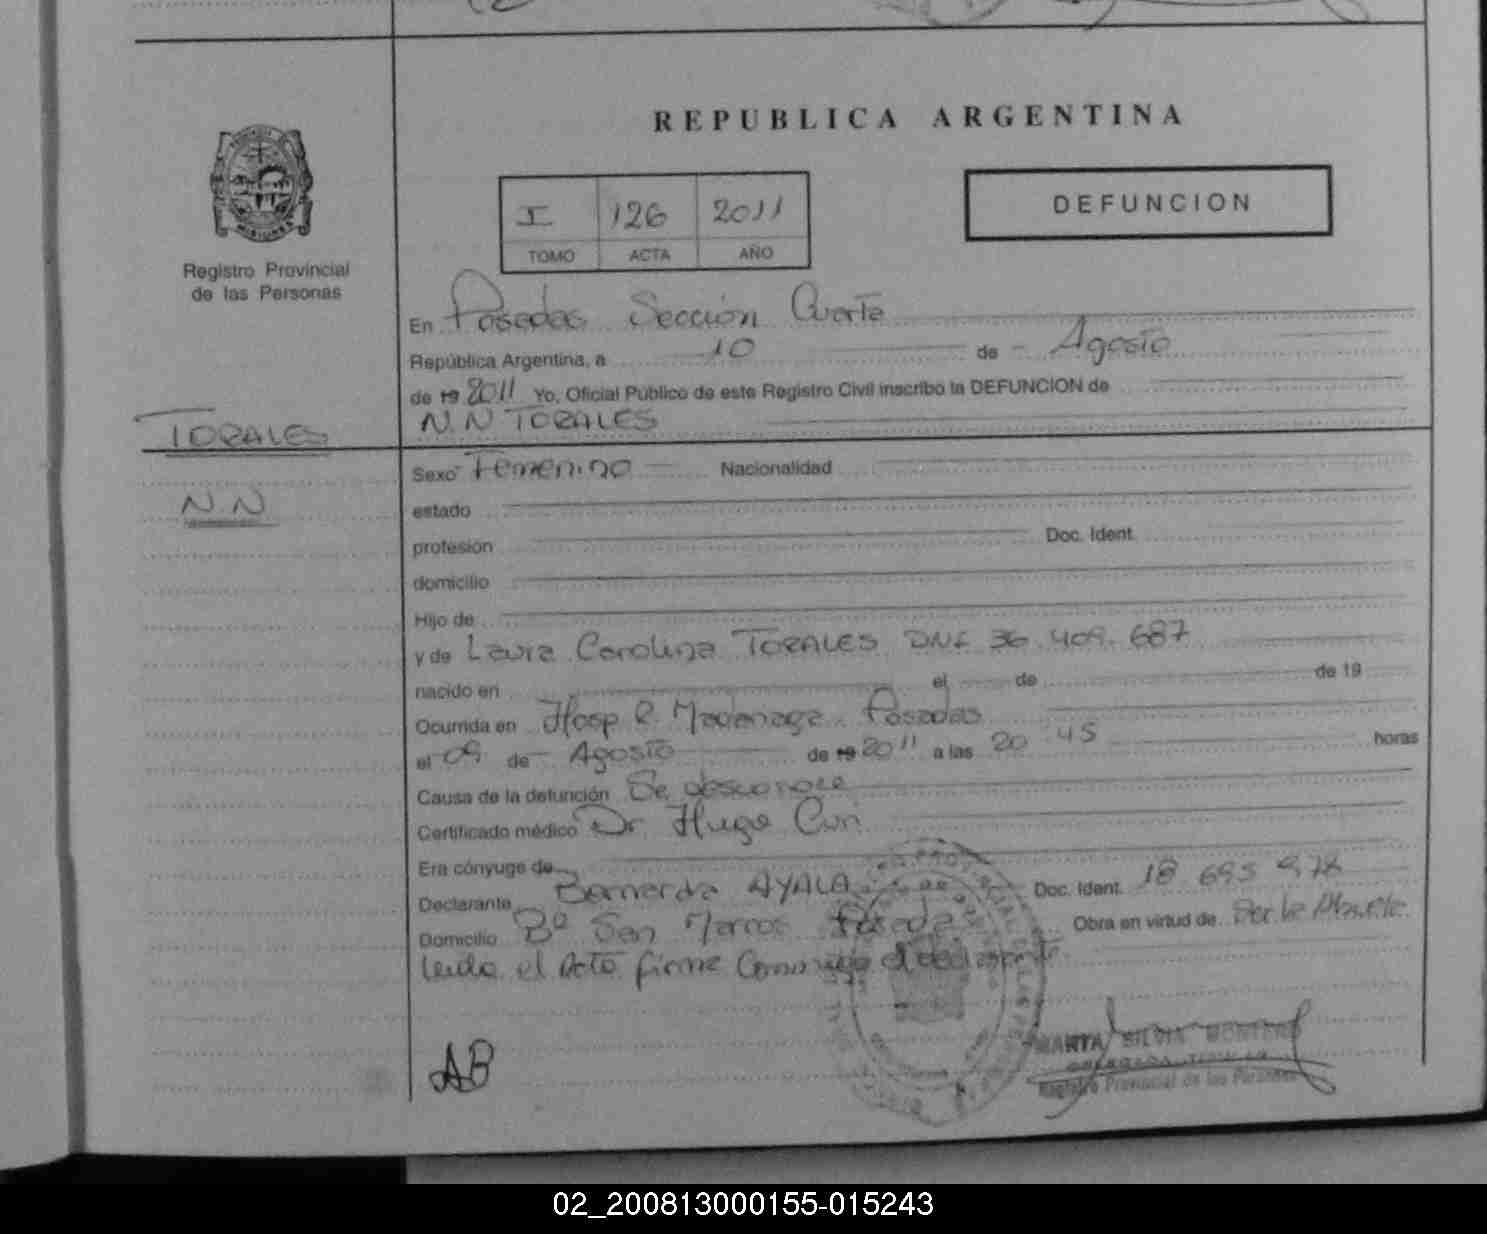 REPUBLICA ARGENTINA
MISIONES
Registro Provincial
de las Personas
I 126 2011
TOMO ACTA AÑO
DEFUNCION
En Posadas Sección Cuarta
República Argentina, a 10 de Agosto
de 19 2011 Yo, Oficial Público de este Registro Civil inscribo la DEFUNCION de
N.N TORALES
TORALES
N.N
Sexo Femenino Nacionalidad
estado
profesión Doc. Ident.
domicilio
Hijo de
y de Laura Carolina TORALES DNI 36.409.687
nacido en el de de 19
Ocurrida en Hosp R. Madariaga Posadas
el 09 de Agosto de 19 2011 a las 20:45 horas
Causa de la defunción Se desconoce
Certificado médico Dr. Hugo
Era cónyuge de
Declarante Bernarda AYALA Doc. Ident. 18 695 978
Domicilio Bº San Marcos Posadas Obra en virtud de Ser la Abuela
Leida el Acta firma Conmigo el declarante
AB
MARTA SILVIA
Registro Provincial de las Personas
02_200813000155-015243